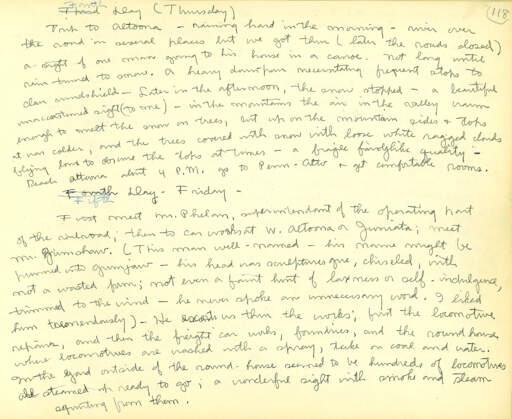 118
Fourth
Third Day (Thursday)
Trip to Altoona - raining hard in the morning - river over
the road in several places but we got thru (later the roads closed)
a sight of one man going to his house in a canoe. Not long until
rain turned to snow. A heavy downpour necessitating frequent stops to
clean windshield - Later in the afternoon, the snow stopped - a beautiful
unaccustomed sight (to me) - in the mountains the air in the valley warm
enough to melt the snow on trees, but up on the mountain sides & tops
it was colder, and the trees covered with snow with loose white ragged clouds
flying low to obscure the tops at times - a fragile quality -
Reach Altoona about 4 P.M. go to Penn-Alto & get comfortable rooms.
Fourth Day - Friday -
Fifth
First meet Mr. Phelan, superintendant of the operating part
of the railroad; then to car works at W. Altoona or Juniata; meet
Mr. Grimshaw. (This man well-named - his name might be
punned into grimjaw - his head was sculpturesque, chiseled, with
not a wasted form; not even a faint hint of laxness or self-indulgence,
trimmed to the wind - he never spoke an unnecessary word. I liked
him tremendously) - He us thru the works; first the locomotive
repairs, and then the freight car works, foundries, and the roundhouse
where locomotives are washed with a spray, take on coal and water.
In the yard outside of the round-house seemed to be hundreds of locomotives
all steamed up ready to go; a wonderful sight with smoke and steam
spurting from them.